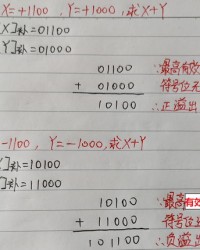 X=+1100 , Y=+1000,求X+Y
X]补=01100
Y]补=01000
01100 ∴最高有效
+ 01000 符号位无
10100 ∴正溢出
-1100, Y=-1000,求X+Y
]补=10100
]补=11000
10100 ∴最高有效
+ 11000 符号位
101100 ∴负溢出